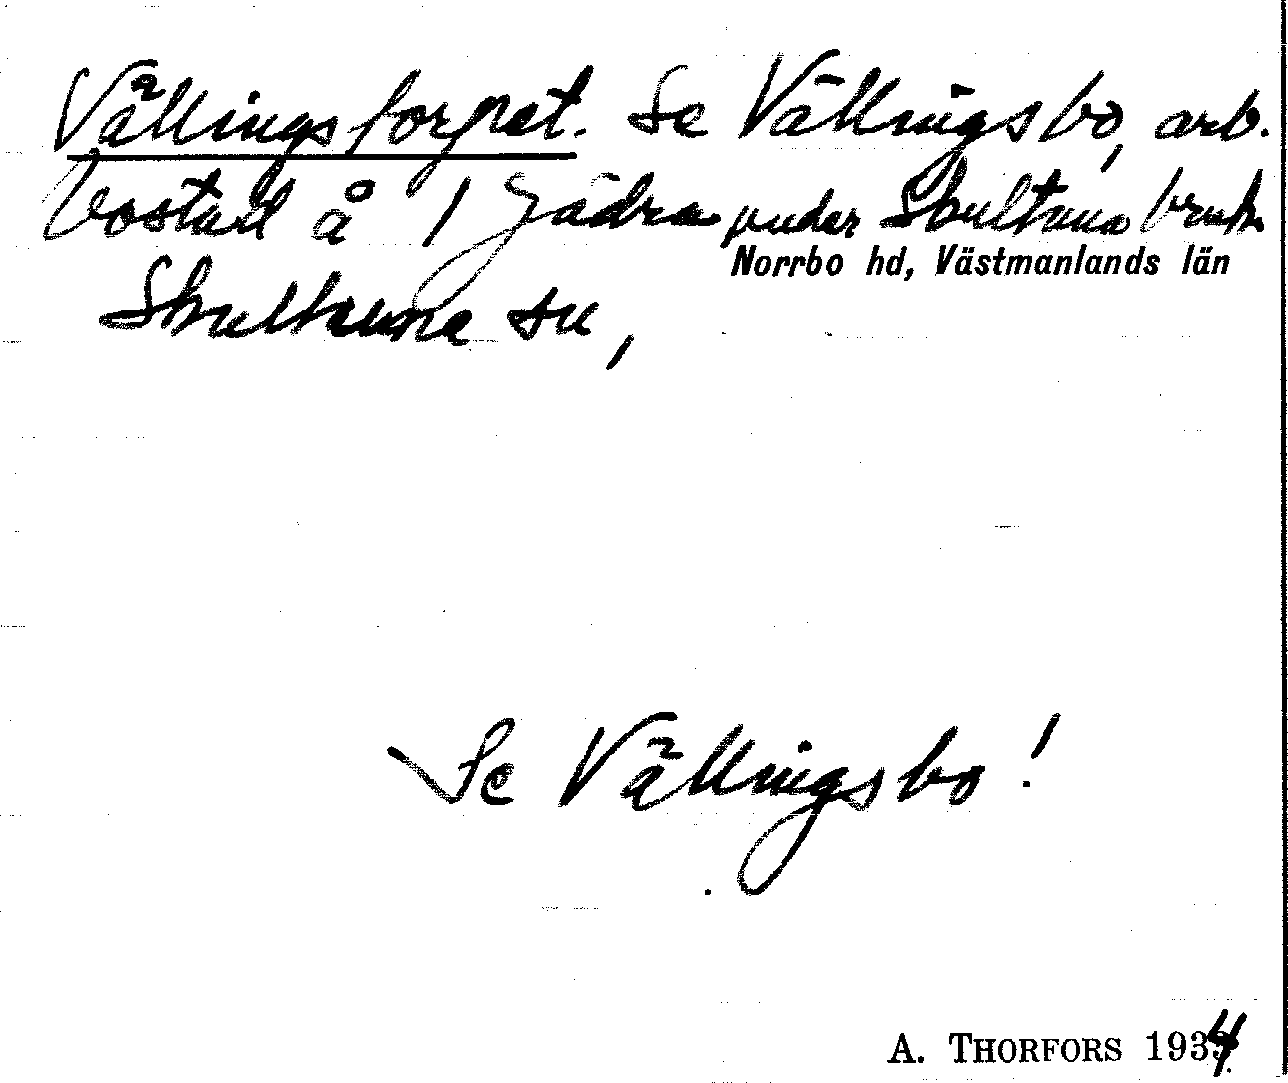 Vällingstorpet. Se Vällingsbo, arb.
bostad å 1 Jädra under Skultuna bruk
Norrbo hd, Västmanlands län
Skultuna sn,
Se Vällingsbo!
A. THORFORS 1934